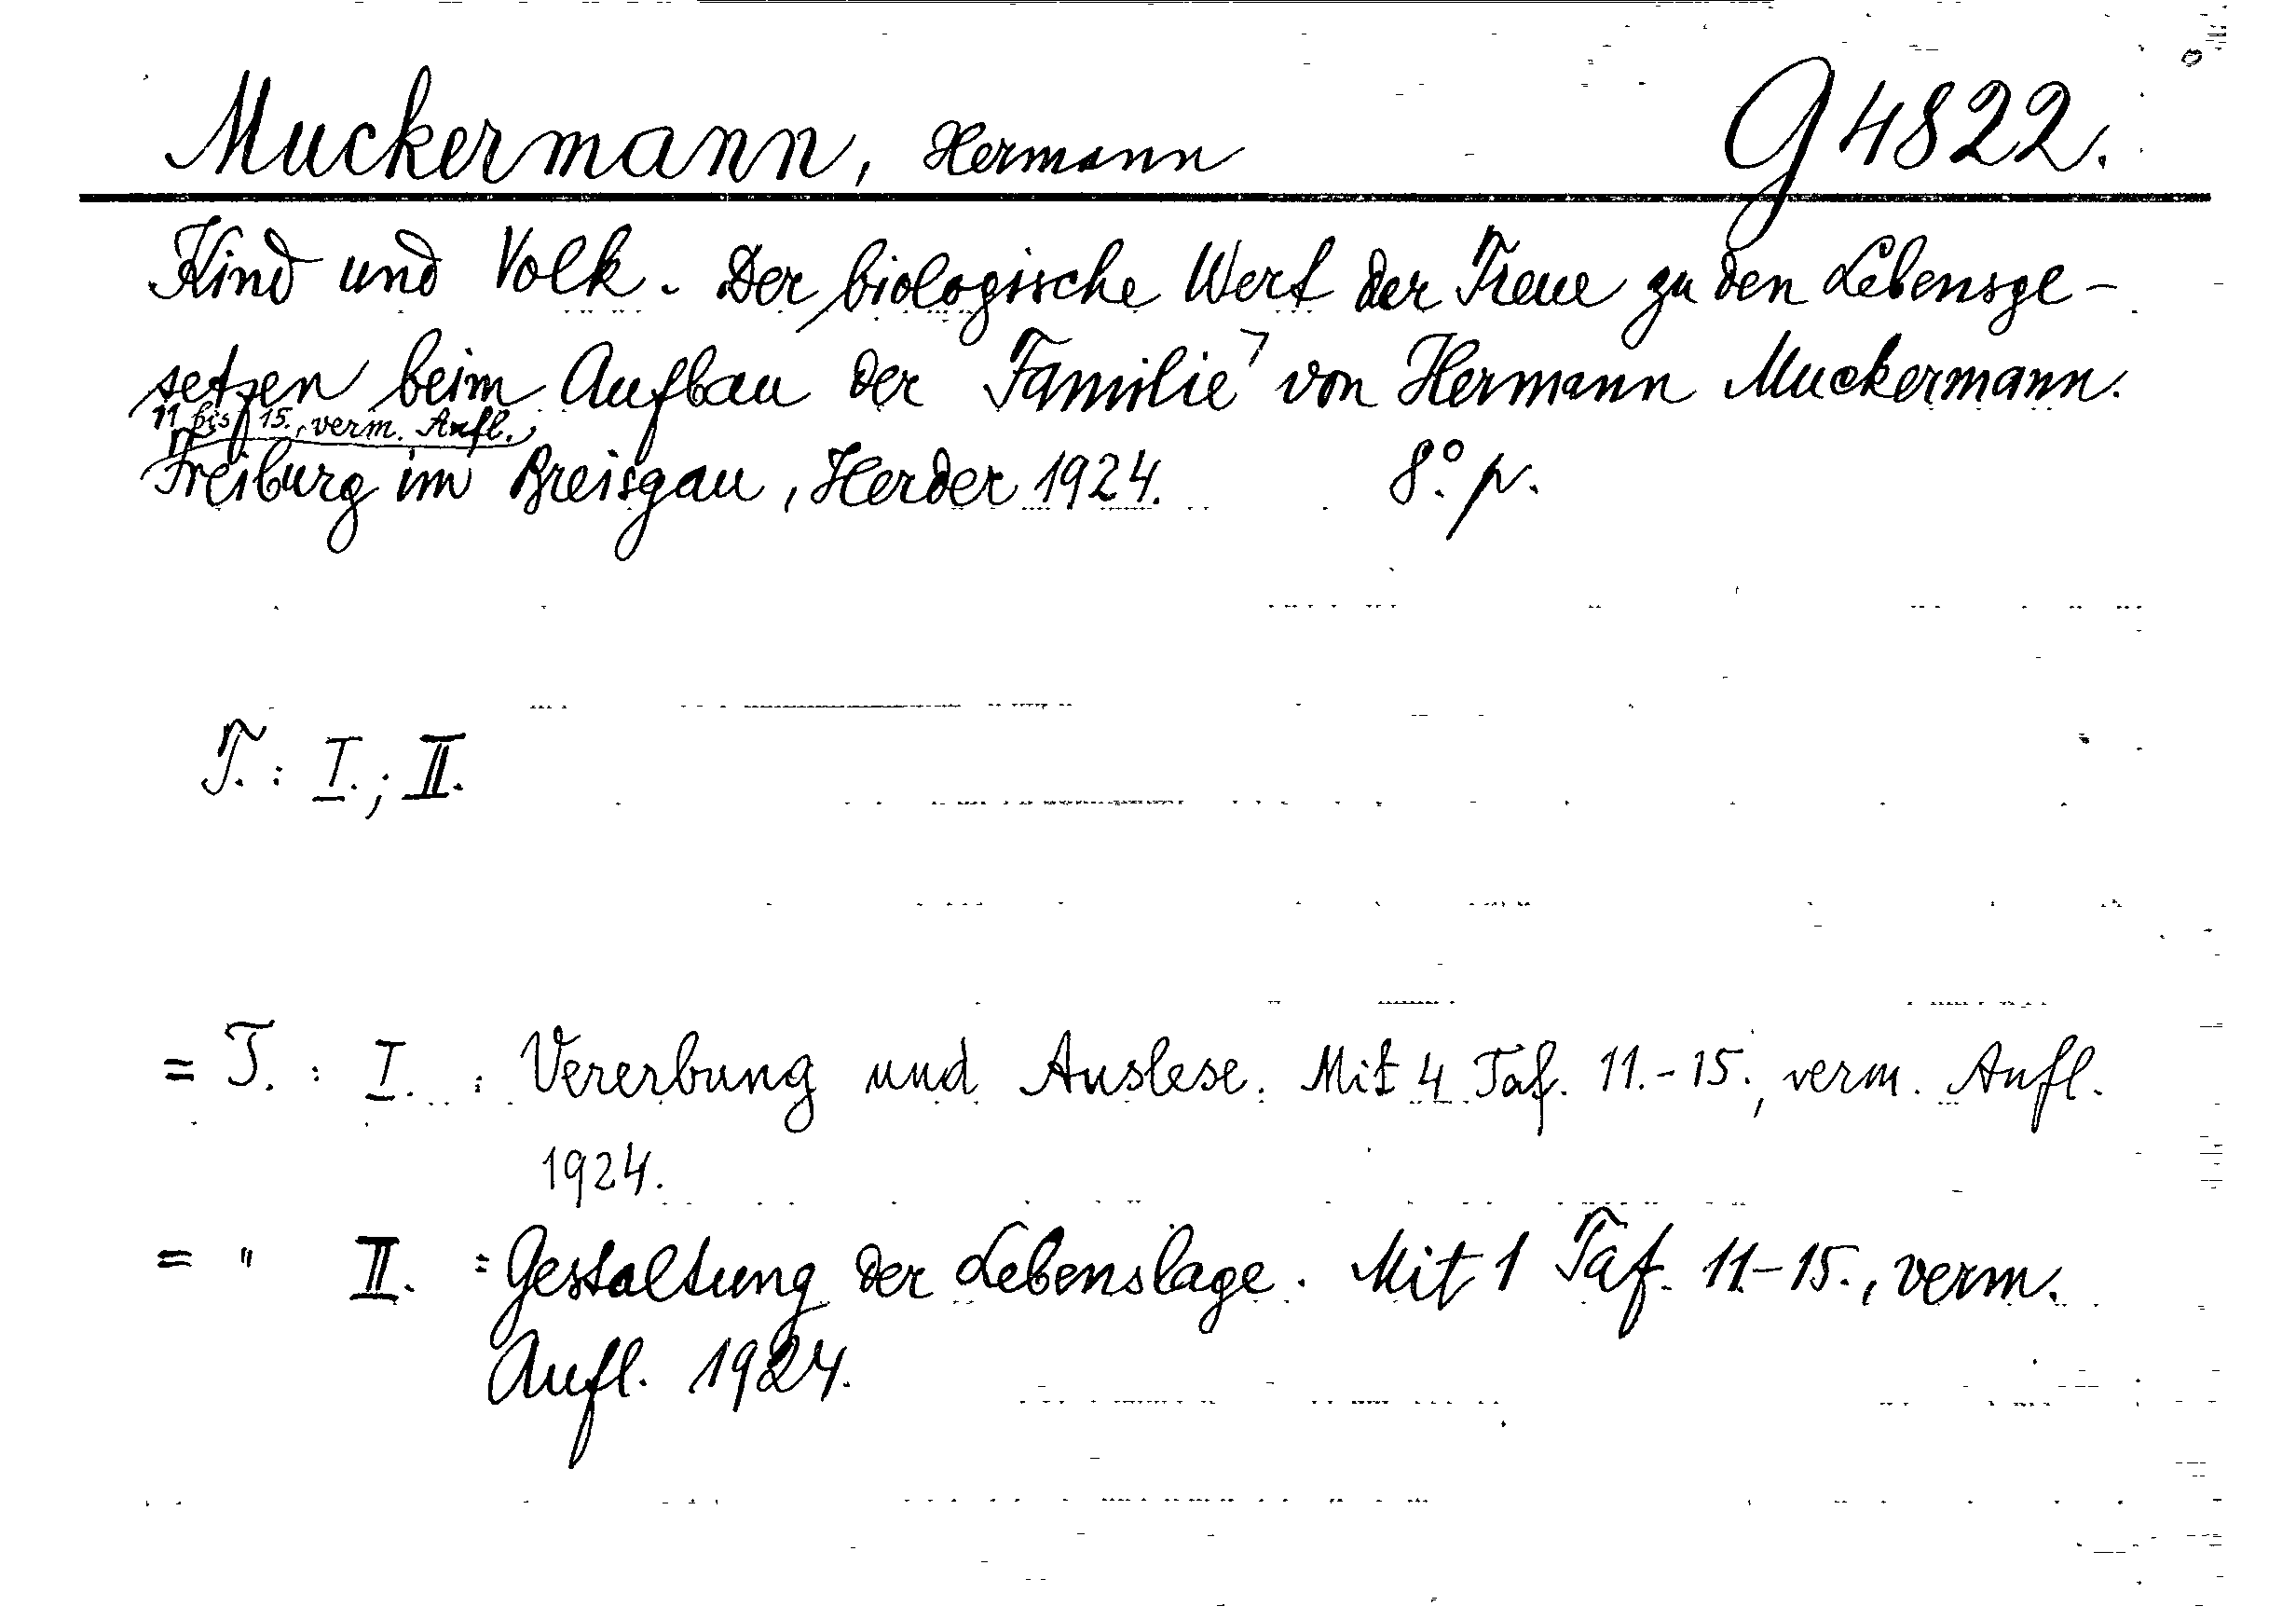 Muckermann, Hermann G 4822.
Kind und Volk. Der biologische Wert der Treue zu den Lebensge-
setzen beim Aufbau der Familie von Hermann Muckermann.
11 bis 15., verm. Aufl.
Freiburg im Breisgau, Herder 1924. 8° p.
T.: I.; II.
= T. : I. : Vererbung und Auslese. Mit 4 Taf. 11.-15., verm. Aufl.
1924.
= " II. : Gestaltung der Lebenslage. Mit 1 Taf. 11.-15., verm.
Aufl. 1924.